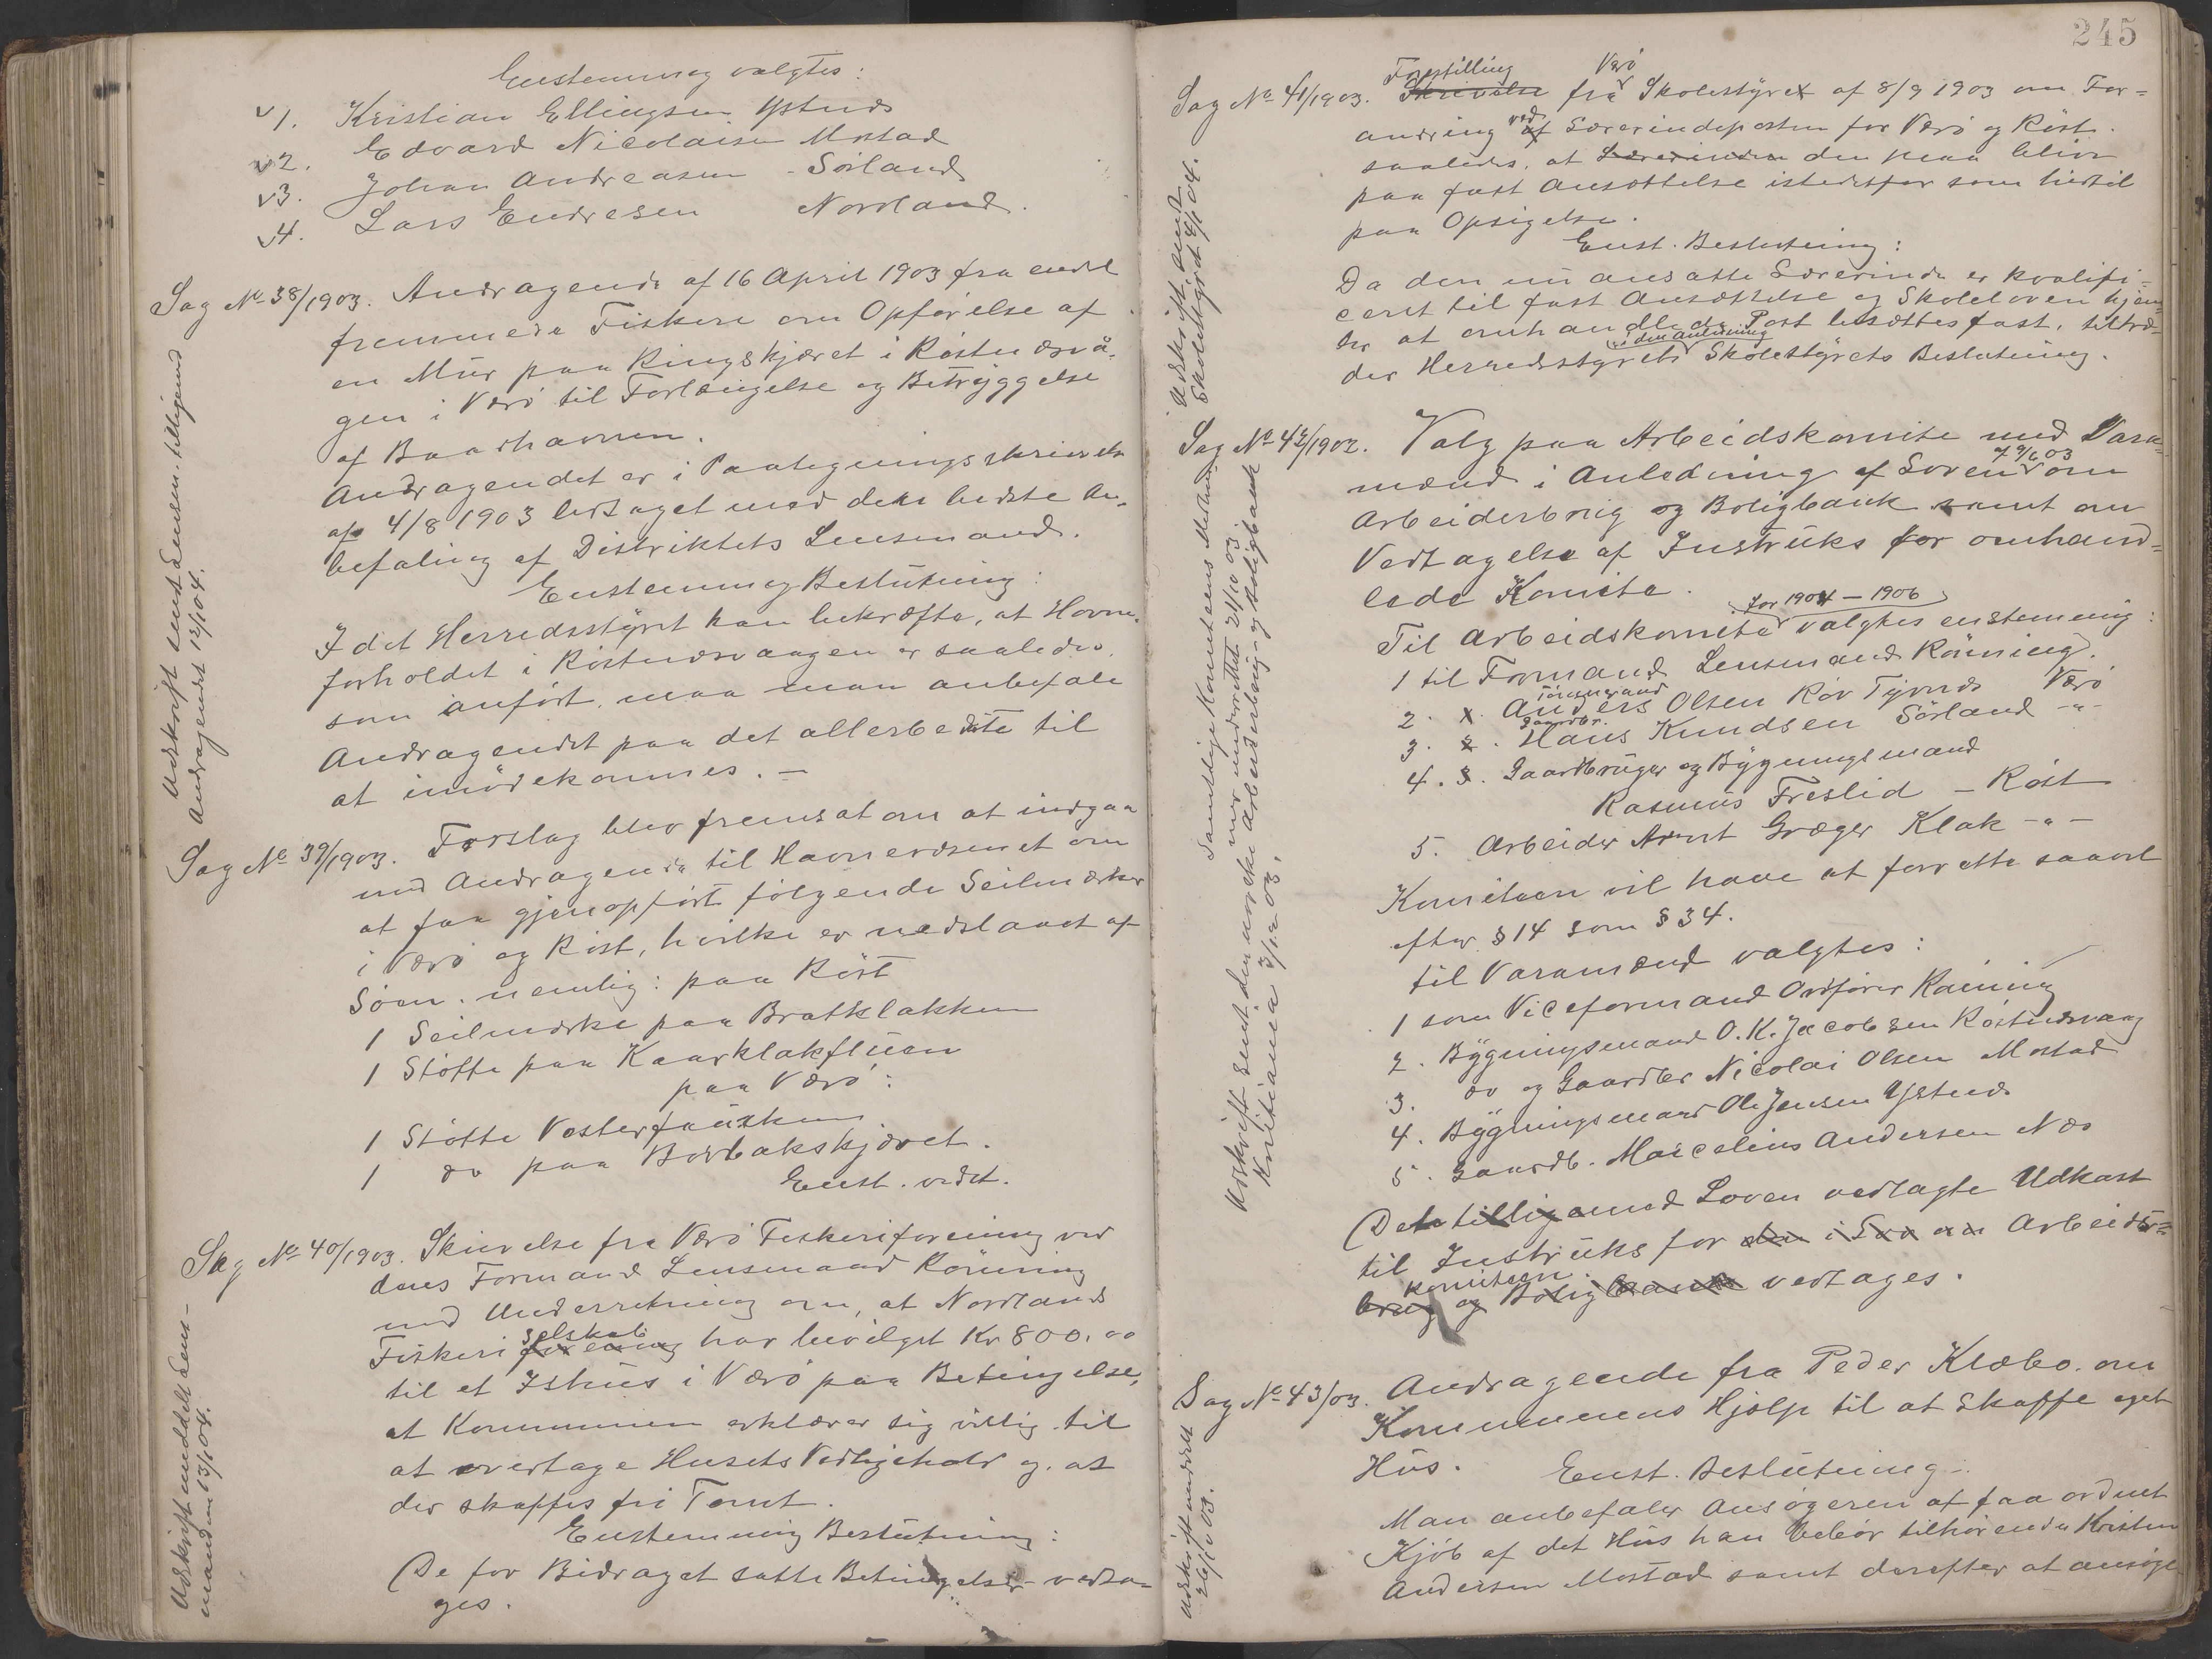 Enstemmig valgtes:
v 1. Kristian Ellingsen Ystnes
v 2. Edvard Nicolaisen Mostad
v 3. Johan Andreasen Sörland
v 4. Lars Endresen Norland.
Sag No 38/1903. Andragende af 16 April 1903 fra endel
fremmede Fiskere om Opförelse af
en Mur paa Ringskjæret i Röstnæsvå-
gen i Værö til Forlængelse og Betryggelse
af Baadhavnen.
Andragendet er i Paategningsskrivelse
af 4/8 1903 ledsaget med den bedste An-
befaling af Distriktets Lensmand.
Enstemmig Beslutning:
I det Herredsstyret kan bekræfte, at Havne-
forholdet i Röstnæsvaagen er saaledes,
som anfört, maa man anbefale
Andragendet paa det allerbedste til
at imödekommes. —
Udskrift sendt Lensm. tilligemed
Andragendet 12/1 04.
Sag No 39/1903. Forslag blev fremsat om at indgaa
med Andragende til Havnevæsenet om
at faa gjenopfört fölgende Seilmærker
i Værö og Röst, hvilke er nedslaaet af
Söen. nemlig: paa Röst
1 Seilmærke paa Bratklakken
1 Stötte paa Kaarklakfluen
paa Værö:
1 Stötte Vesterfausken
1 do paa Borbakskjæret.
Enst. vedt.
Sag No 40/1903. Skrivelse fra Værö Fiskeriforening ved
dens Formand Lensmand Rönning
med Underretning om, at Nordlands
selskab
Fiskeriforening har bevilget Kr 800,00
til et Ishus i Værö paa Betingelse,
at Kommunen erklærer sig villig til
at overtage Husets Vedligehold og at
der skaffes fri Tomt.
Enstemmig Beslutning:
De for Bidraget satte Betingelser vedta-
ges.
Udskrift meddelt Lens-
manden 13/1 04.
245
Forestilling Værö
Sag No 41/1903. Skrivelse fra Skolestyret af 8/9 1903 om For-
ved
andring af Lærerindeposten for Værö og Röst.
saaledes, at Lærerinden den maa blive
paa fast Ansættelse istedetfor som hidtil
paa Opsigelse.
Enst. Beslutning:
Da den nu ansatte Lærerinde er kvalifi-
ceret til fast Ansættelse og Skoleloven hjem-
ler at omhandlede Post besættes fast, tiltræ-
i den Anledning
der Herredsstyrets Skolestyrets Beslutning.
Udskrift sendt
Skolestyret 4/1 04.
Sag No 42/1902. Valg paa Arbeidskomite med Vara-
af 9/6 03
mænd i Anledning af Loven om
Arbeiderbrug og Boligbank samt om
Vedtagelse af Instruks for omhand-
lede Komite.
for 1904 — 1906
Til Arbeidskomite valgtes enstemmig:
1 til Formand Lensmand Rönning.
Tömmermand
2. x. Anders Olsen Röv Tyvnes Værö
Gaardbr.
3. 2. Hans Knudsen Sörland -"-
4. 3. Gaardbruger og Bygningsmand
Rasmus Freslid — Röst
5. Arbeider Arnt Græger Klak -"-
Komiteen vil have at forrette saavel
efter § 14 som § 34.
til Varamænd valgtes:
1 som Viceformand Ordförer Rönning
2. Bygningsmand O. K. Jacobsen Röstnæsvaag
3. do og Gaardbr Nicolai Olsen Mostad
4. Bygningsmand Ole Jensen Ystnes
5. Gaardb. Marcelius Andersen Næs
Det tilligemed Loven vedlagte Udkast
til Instruks for den i Lov om Arbeids-
komiteen
brug og Boligbank vedtages.
Samtlige Komiteens Medlemmer underrettet 21/10 03
Udskrift sendt den norske Arbeiderbrug- og Boligbank
Kristiania 3/12 03.
Sag No 43/03. Andragende fra Peder Klæbo. om
Kommunens Hjælp til at skaffe eget
Hus. Enst. Beslutning.
Man anbefaler Ansögeren at faa ordnet
Kjöb af det Hus han bebor tilhörende Kristen
Andersen Mostad samt derefter at ansöge
Udskrift meddelt
26/10 03.